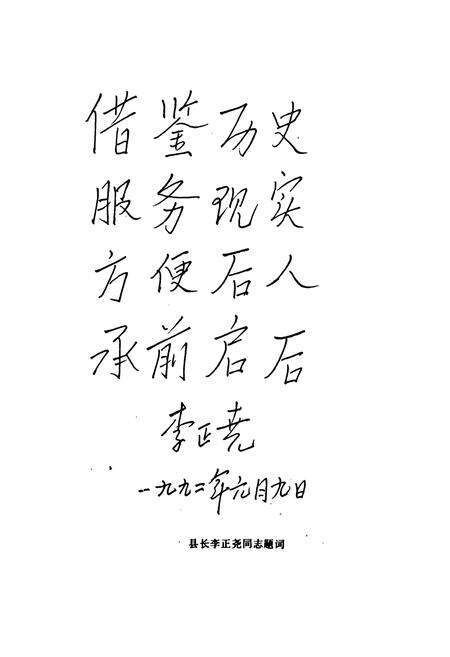 借鉴历史
服务现实
方便后人
承前启后
李正尧
一九九二年六月九日
县长李正尧同志题词